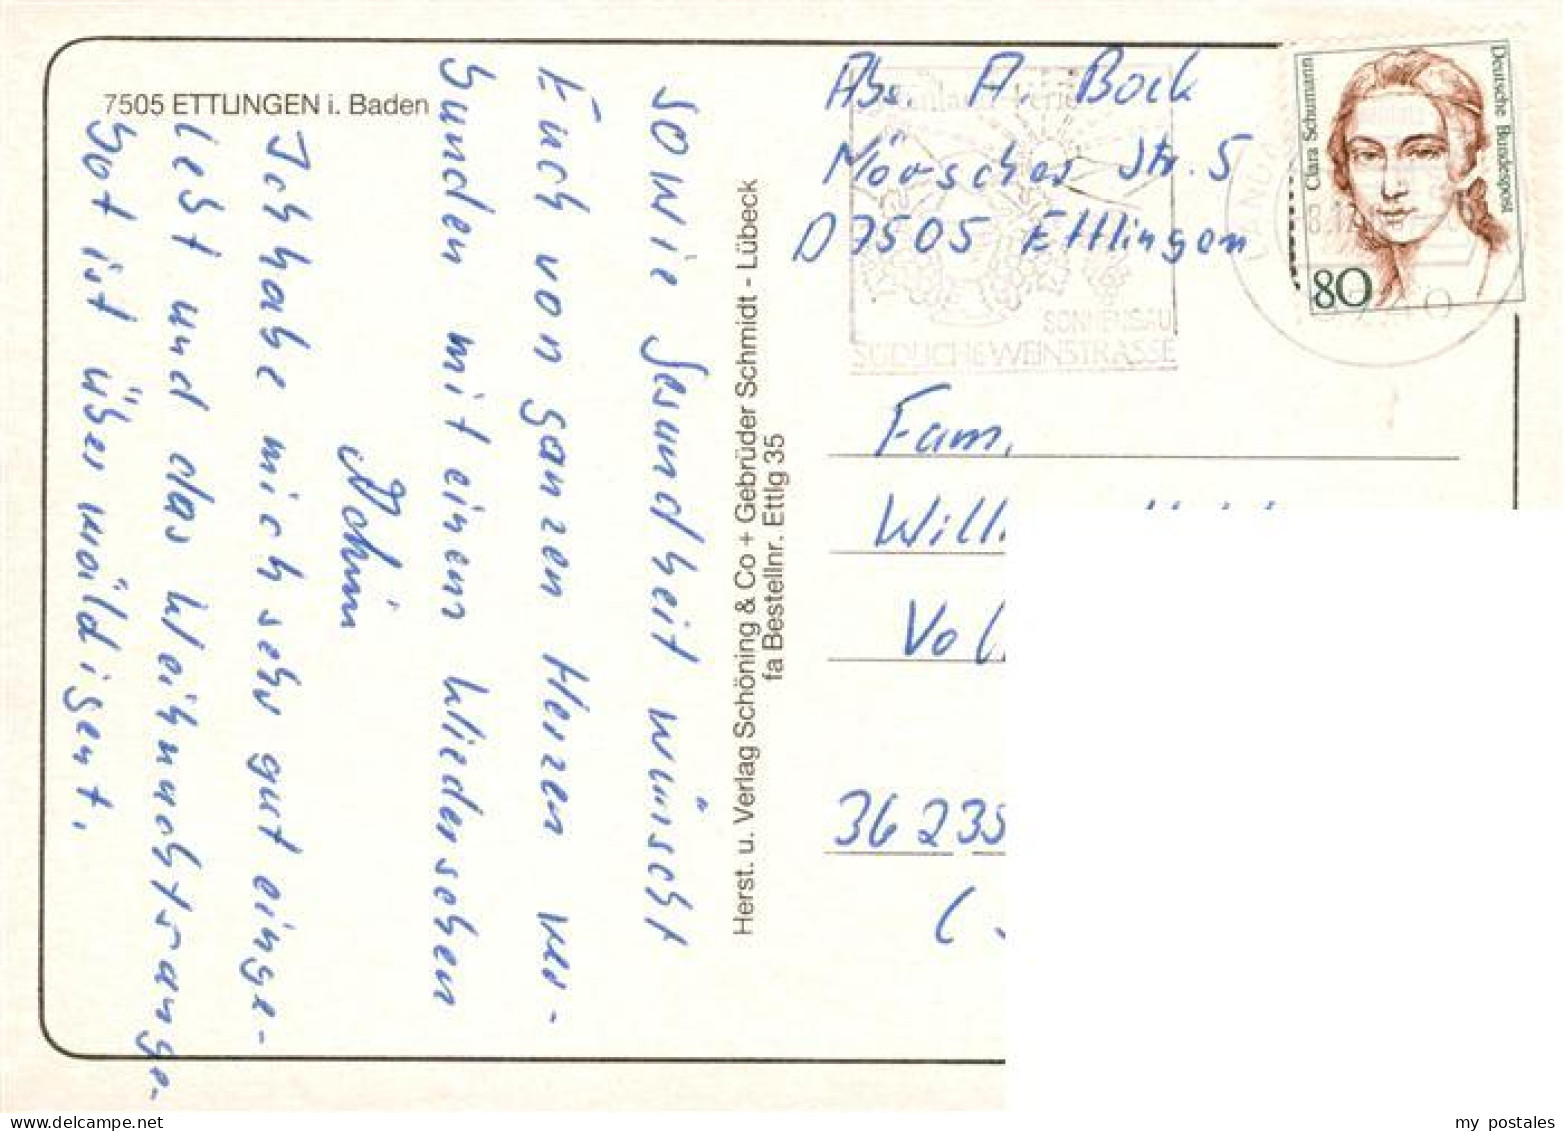 7505 ETTLINGEN i. Baden
sowie Gesundheit wünscht
Euch von ganzen Herzen ver-
bunden mit einem Wiedersehen
Achim
Ich habe mich sehr gut einge-
lebt und das Weihnachtsange-
bot ist überwäldigent.
Herst. u. Verlag Schöning & Co + Gebrüder Schmidt - Lübeck
fa Bestellnr. Ettlg 35
Abs. A. Bock
Mörscher Str. 5
D 7505 Ettlingen
SÜDLICHE WEINSTRASSE
Clara Schumann
Deutsche Bundespost
80
Fam.
Will
Vol
36 235
my postales